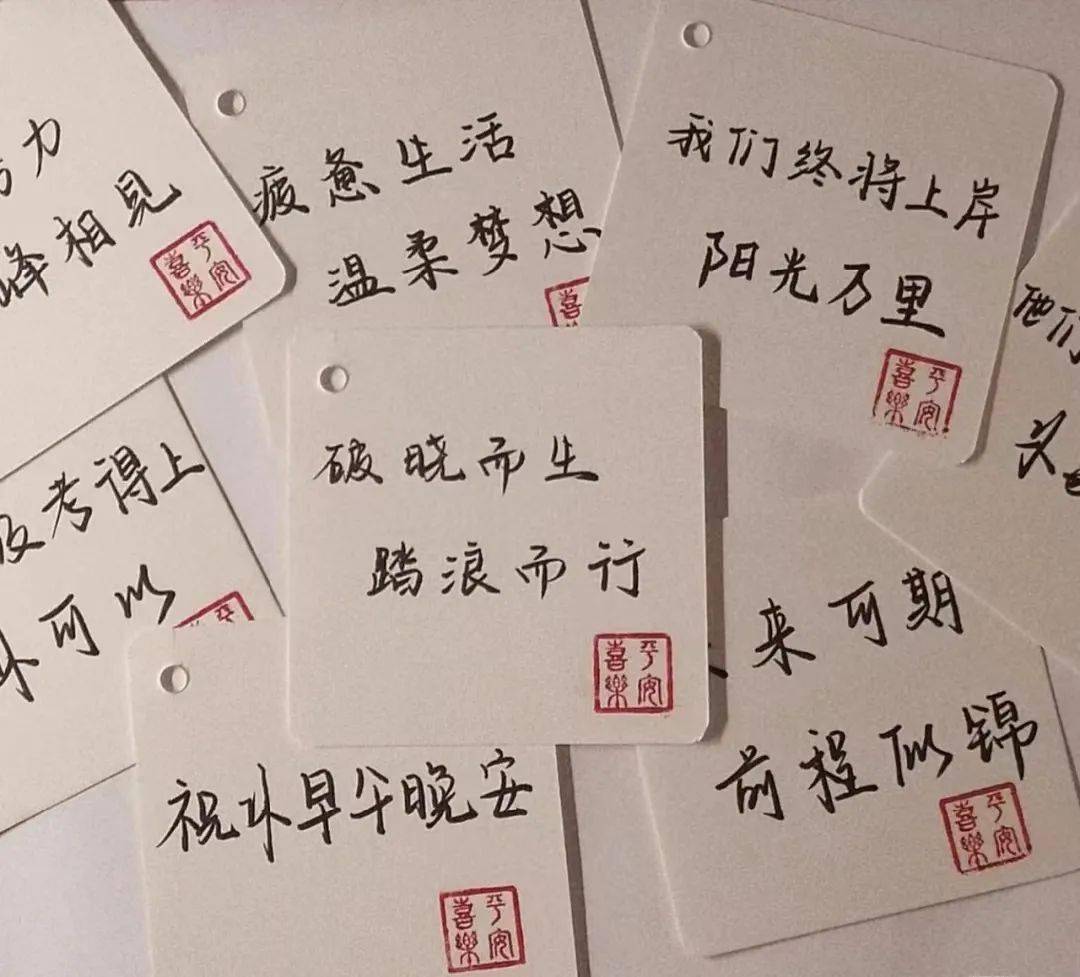 力
峰相见
平安
喜樂
疲惫生活
温柔梦想
喜
我们终将上岸
阳光万里
平安
喜樂
们
考得上
你可以
破晓而生
踏浪而行
平安
喜樂
来可期
前程似锦
平安
喜樂
祝你早午晚安
平安
喜樂